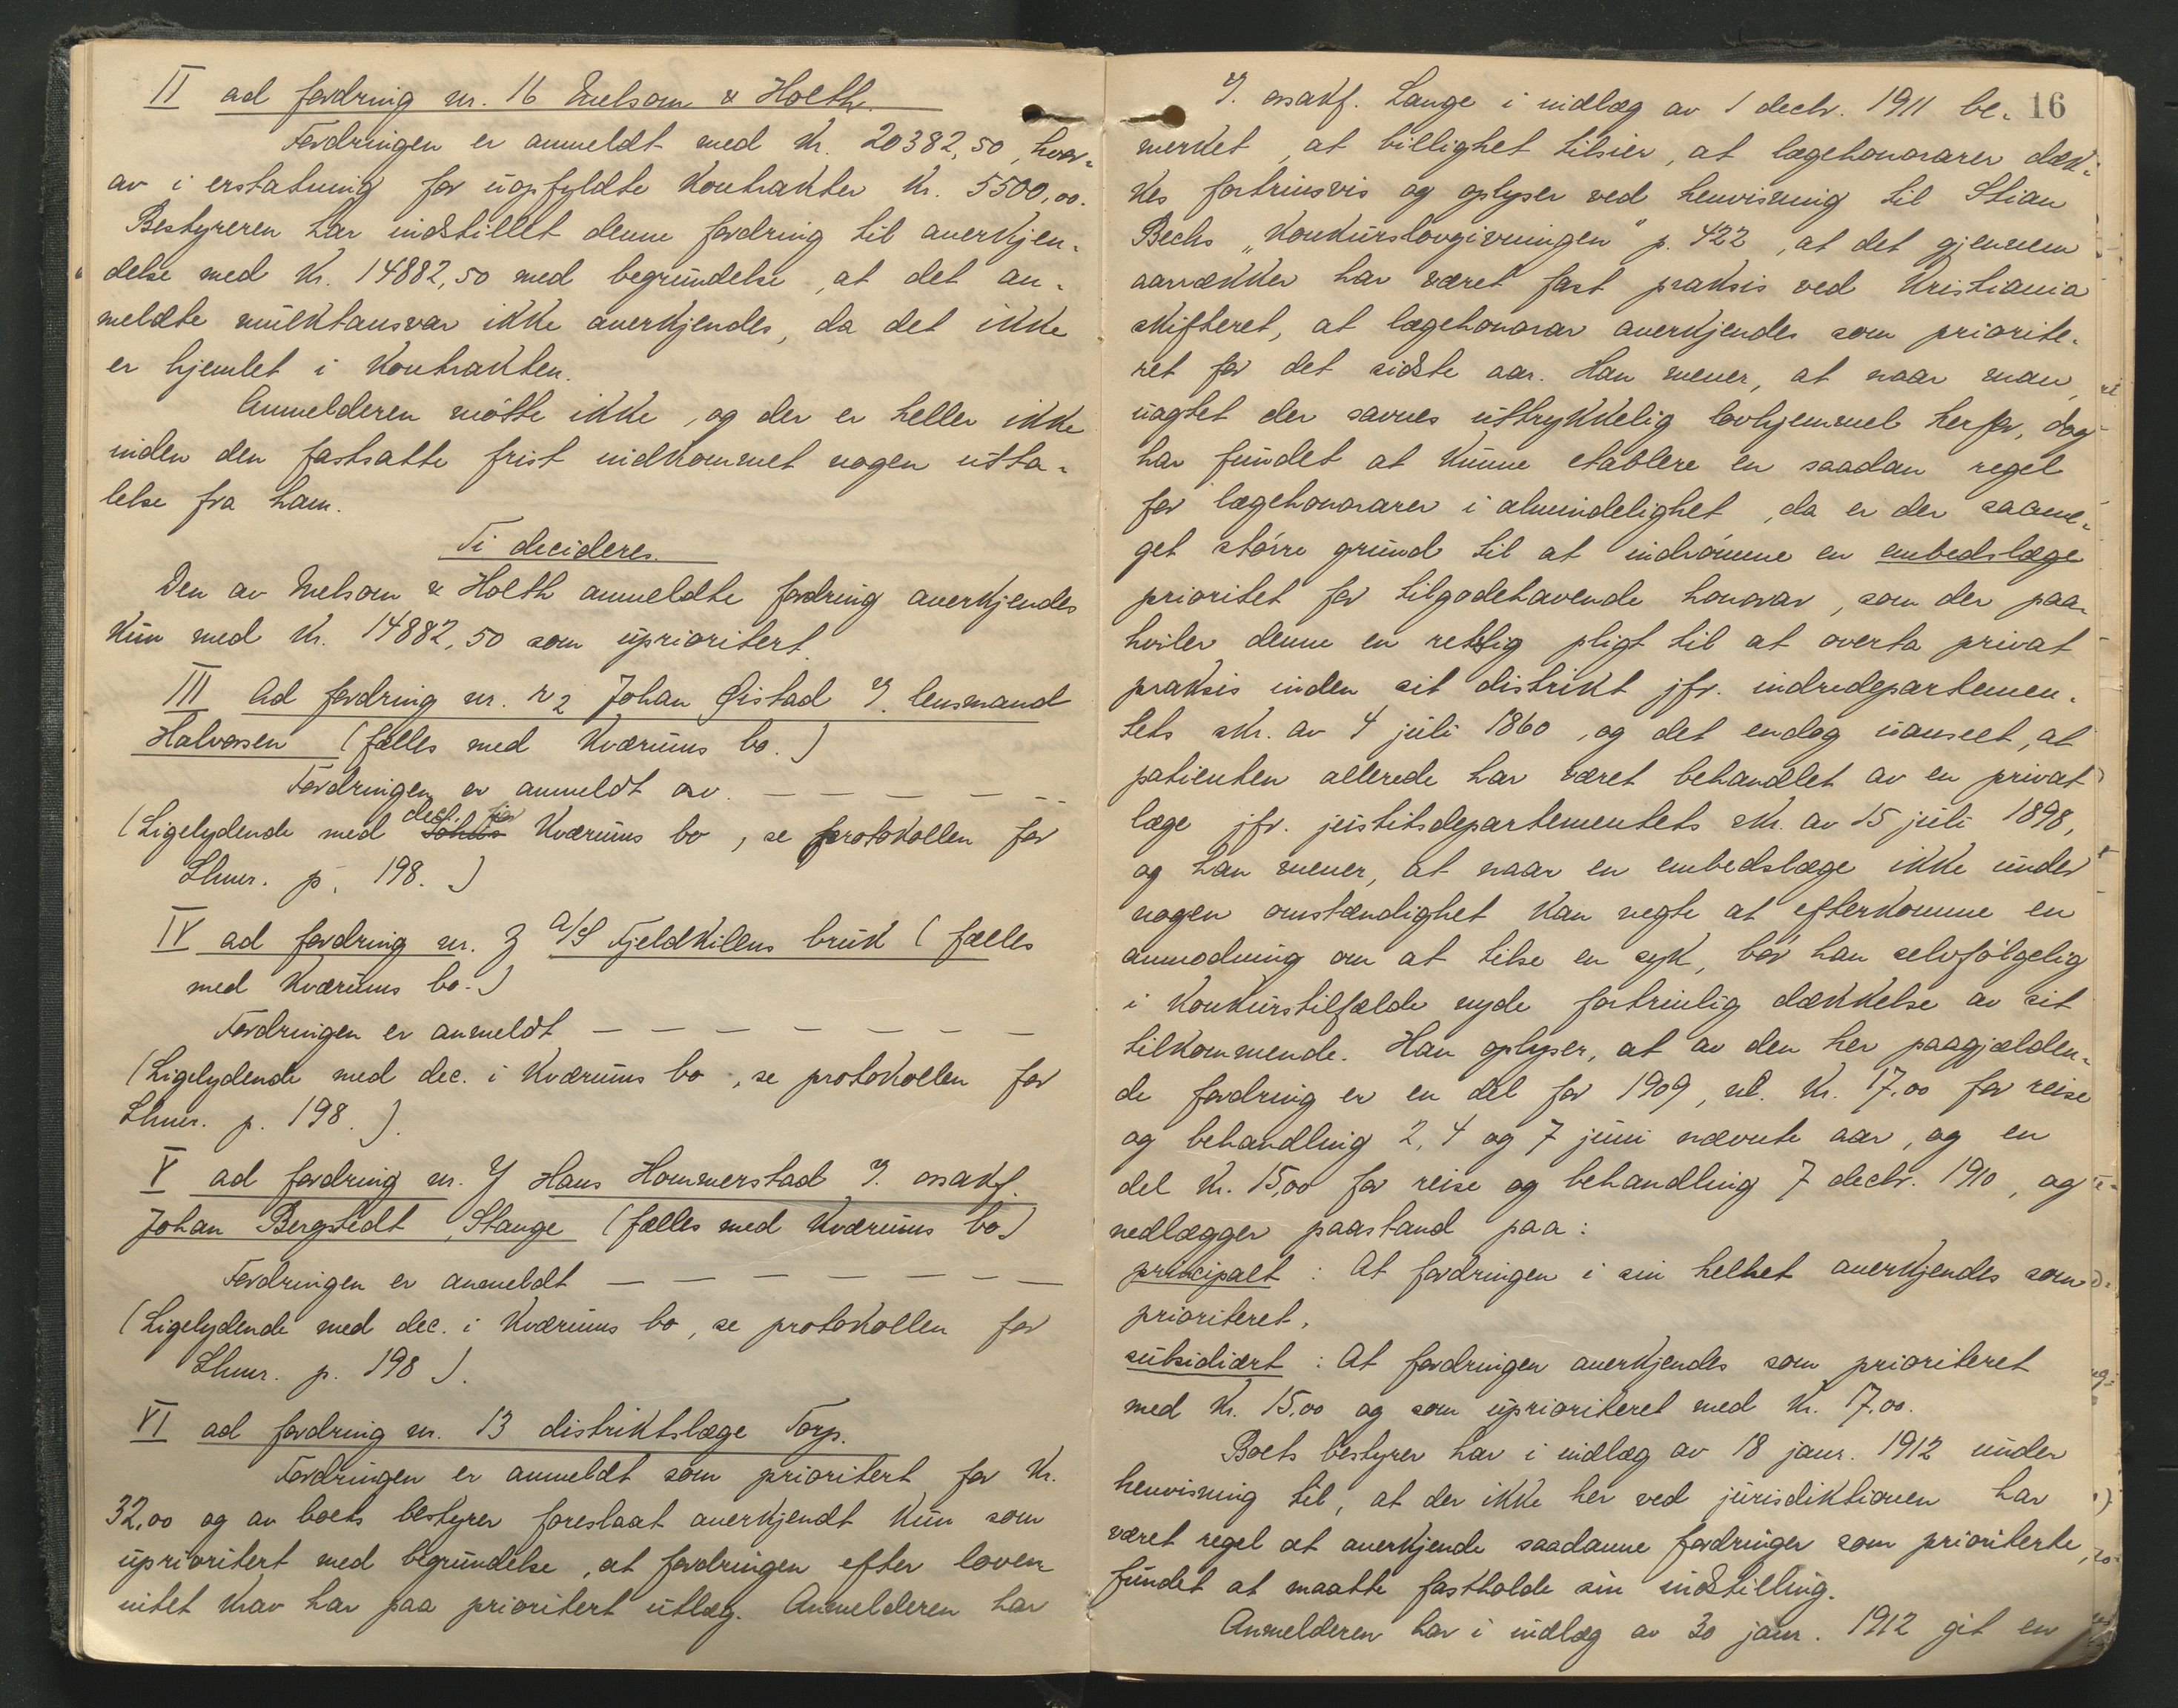 II ad fordring nr. 16 Melsom & Holth.
Fordringen er anmeldt med kr. 20382,50, hvor-
av i erstatning for uopfyldte kontrakter kr. 5500,00.
Bestyreren har indstillet denne fordring til anerkjen-
delse med kr. 14882,50 med begrundelse, at det an-
meldte mulktansvar ikke anerkjendes, da det ikke
er hjemlet i kontrakten.
Anmelderen møtte ikke, og der er heller ikke
inden den fastsatte frist indkommet nogen utta-
lelse fra ham.
Ti decideres.
Den av Melsom & Holth anmeldte fordring anerkjendes
kun med kr. 14882,50 som uprioritert.
III Ad fordring nr. r2 Johan Øistad v. lensmand
Halvorsen (fælles med Kværums bo.)
Fordringen er anmeldt av. — — — — — —
(Ligelydende med dect. for Kværums bo, se protokollen for
Lhmr. p. 198.)
IV ad fordring nr. z A/S Fjeldkilens bruk (fælles
med Kværums bo.)
Fordringen er anmeldt — — — — — — —
(Ligelydende med dec. i Kværums bo, se protokollen for
Lhmr. p. 198.).
V ad fordring nr. y Hans Hommerstad v. o.s.akf.
Johan Bergstedt, Stange (fælles med Kværums bo.)
Fordringen er anmeldt — — — — — — —
(Ligelydende med dec. i Kværums bo, se protokollen for
Lhmr. p. 198).
VI ad fordring nr. 13 distriktslæge Torp.
Fordringen er anmeldt som prioritert for kr.
32,00 og av boets bestyrer foreslaat anerkjendt kun som
uprioritert med begrundelse, at fordringen efter loven
intet krav har paa prioritert utlæg. Anmelderen har
16
v. o.s.akf. Lange i indlæg av 1 decbr. 1911 be-
merket, at billighet tilsier, at lægehonorarer dæk-
kes fortrinsvis og oplyser ved henvisning til Stian
Bechs „Konkurslovgivningen" p. 422, at det gjennem
aarrækker har været fast praksis ved Kristiania
skifteret, at lægehonorar anerkjendes som priorite-
ret for det sidste aar. Han mener, at naar man,
uagtet der savnes uttrykkelig lovhjemmel herfor, dog
har fundet at kunne etablere en saadan regel
for lægehonorarer i almindelighet, da er der saame-
get større grund til at indrømme en embedslæge
prioritet for tilgodehavende honorar, som der paa-
hviler denne en retslig pligt til at overta privat
praksis inden sit distrikt jfr. indredepartemen-
tets skr. av 4 juli 1860, og det endog uanseet, at
patienten allerede har været behandlet av en privat
læge jfr. justitsdepartementets skr. av 15 juli 1898,
og han mener, at naar en embedslæge ikke under
nogen omstændighet kan negte at efterkomme en
anmodning om at tilse en syk, bør han selvfølgelig
i konkurstilfælde nyde fortrinlig dækkelse av sit
tilkommende. Han oplyser, at av den her paagjælden-
de fordring er en del for 1909, nl. kr. 17,00 for reise
og behandling 2, 4 og 7 juni nævnte aar, og en
del kr. 15,00 for reise og behandling 7 decbr. 1910, og
nedlægger paastand paa:
principalt: At fordringen i sin helhet anerkjendes som
prioriteret.
subsidiært: At fordringen anerkjendes som prioriteret
med kr. 15,00 og som uprioriteret med kr. 17,00.
Boets bestyrer har i indlæg av 18 janr. 1912 under
henvisning til, at der ikke her ved jurisdiktionen har
været regel at anerkjende saadanne fordringer som prioriterte,
fundet at maatte fastholde sin indstilling.
Anmelderen har i indlæg av 30 janr. 1912 git en